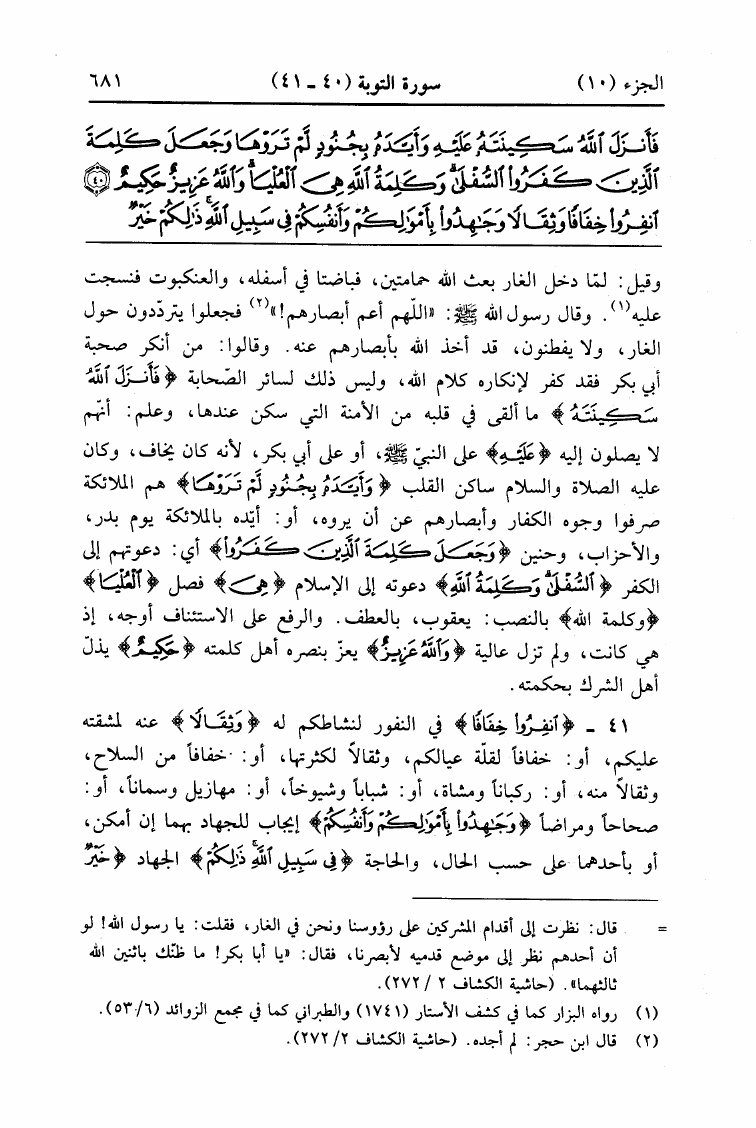 الجزء (١٠) سورة التوبة (٤٠ - ٤١) ٦٨١
فَأَنزَلَ ٱللَّهُ سَكِينَتَهُۥ عَلَيْهِ وَأَيَّدَهُۥ بِجُنُودٍ لَّمْ تَرَوْهَا وَجَعَلَ كَلِمَةَ
ٱلَّذِينَ كَفَرُوا۟ ٱلسُّفْلَىٰ وَكَلِمَةُ ٱللَّهِ هِىَ ٱلْعُلْيَا وَٱللَّهُ عَزِيزٌ حَكِيمٌ ﴿٤٠﴾
ٱنفِرُوا۟ خِفَافًا وَثِقَالًا وَجَٰهِدُوا۟ بِأَمْوَٰلِكُمْ وَأَنفُسِكُمْ فِى سَبِيلِ ٱللَّهِ ذَٰلِكُمْ خَيْرٌ
وقيل: لمّا دخل الغار بعث الله حمامتين، فباضتا في أسفله، والعنكبوت فنسجت
عليه(١). وقال رسول الله ﷺ: «اللّهم أعم أبصارهم!»(٢) فجعلوا يتردّدون حول
الغار، ولا يفطنون، قد أخذ الله بأبصارهم عنه. وقالوا: من أنكر صحبة
أبي بكر فقد كفر لإنكاره كلام الله، وليس ذلك لسائر الصّحابة ﴿فَأَنزَلَ ٱللَّهُ
سَكِينَتَهُۥ﴾ ما ألقى في قلبه من الأمنة التي سكن عندها، وعلم: أنّهم
لا يصلون إليه ﴿عَلَيْهِ﴾ على النبيّ ﷺ، أو على أبي بكر، لأنه كان يخاف، وكان
عليه الصلاة والسلام ساكن القلب ﴿وَأَيَّدَهُۥ بِجُنُودٍ لَّمْ تَرَوْهَا﴾ هم الملائكة
صرفوا وجوه الكفار وأبصارهم عن أن يروه، أو: أيّده بالملائكة يوم بدر،
والأحزاب، وحنين ﴿وَجَعَلَ كَلِمَةَ ٱلَّذِينَ كَفَرُوا۟﴾ أي: دعوتهم إلى
الكفر ﴿ٱلسُّفْلَىٰ وَكَلِمَةُ ٱللَّهِ﴾ دعوته إلى الإسلام ﴿هِىَ﴾ فصل ﴿ٱلْعُلْيَا﴾
﴿وكلمة الله﴾ بالنصب: يعقوب، بالعطف. والرفع على الاستئناف أوجه، إذ
هي كانت، ولم تزل عالية ﴿وَٱللَّهُ عَزِيزٌ﴾ يعزّ بنصره أهل كلمته ﴿حَكِيمٌ﴾ يذلّ
أهل الشرك بحكمته.
٤١ - ﴿ٱنفِرُوا۟ خِفَافًا﴾ في النفور لنشاطكم له ﴿وَثِقَالًا﴾ عنه لمشقته
عليكم، أو: خفافاً لقلّة عيالكم، وثقالاً لكثرتها، أو: خفافاً من السلاح،
وثقالاً منه، أو: ركباناً ومشاة، أو: شباباً وشيوخاً، أو: مهازيل وسماناً، أو:
صحاحاً ومراضاً ﴿وَجَٰهِدُوا۟ بِأَمْوَٰلِكُمْ وَأَنفُسِكُمْ﴾ إيجاب للجهاد بهما إن أمكن،
أو بأحدهما على حسب الحال، والحاجة ﴿فِى سَبِيلِ ٱللَّهِ ذَٰلِكُمْ﴾ الجهاد ﴿خَيْرٌ
= قال: نظرت إلى أقدام المشركين على رؤوسنا ونحن في الغار، فقلت: يا رسول الله! لو
أن أحدهم نظر إلى موضع قدميه لأبصرنا، فقال: «يا أبا بكر! ما ظنّك باثنين الله
ثالثهما». (حاشية الكشاف ٢/ ٢٧٢).
(١) رواه البزار كما في كشف الأستار (١٧٤١) والطبراني كما في مجمع الزوائد (٦/ ٥٣).
(٢) قال ابن حجر: لم أجده. (حاشية الكشاف ٢/ ٢٧٢).